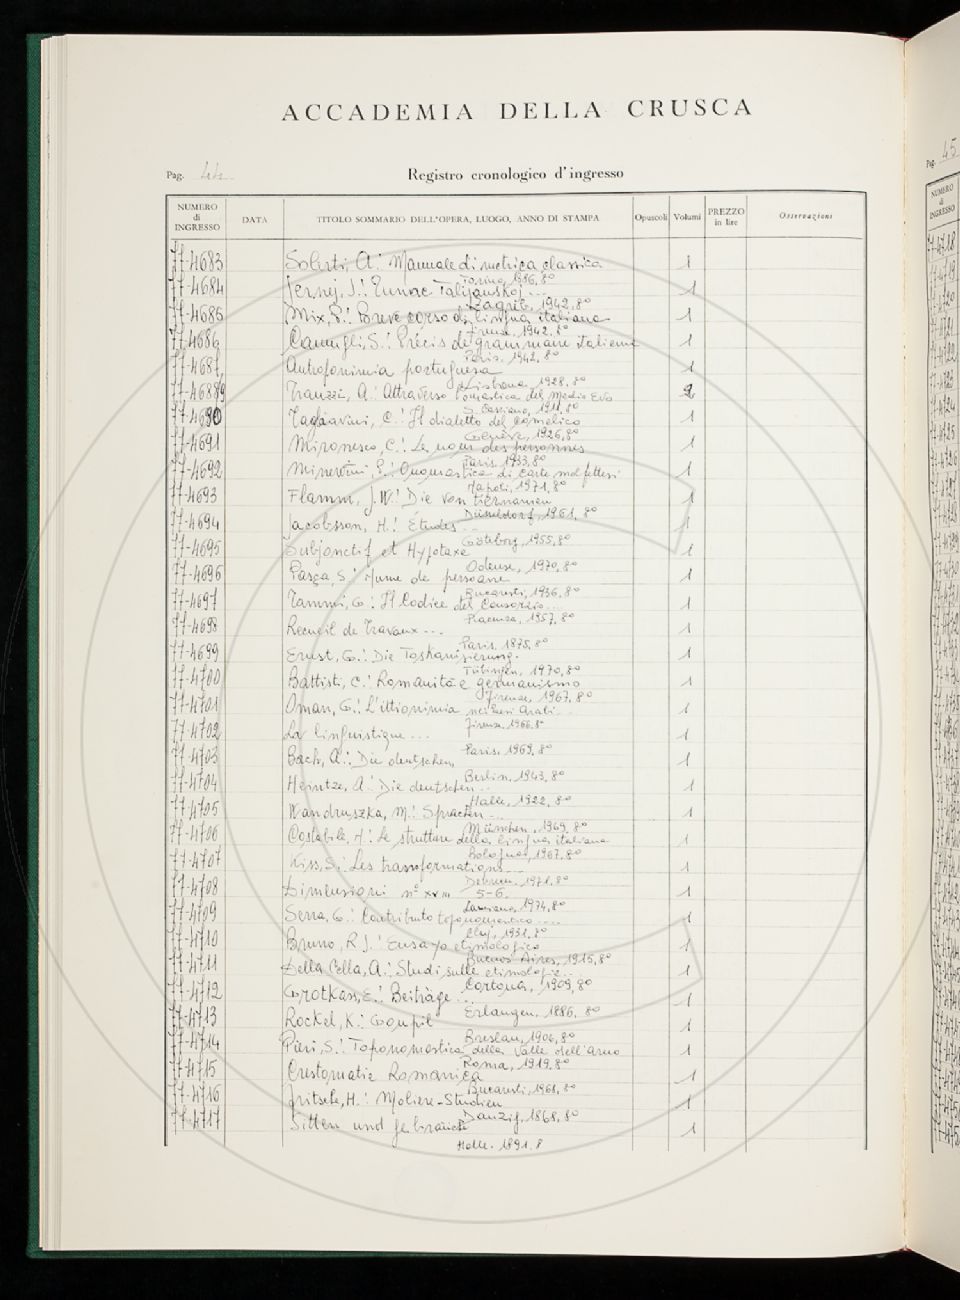 ACCADEMIA DELLA CRUSCA
Pag. 44
Registro cronologico d'ingresso
NUMERO di INGRESSO DATA TITOLO SOMMARIO DELL'OPERA, LUOGO, ANNO DI STAMPA Opuscoli Volumi PREZZO in lire Osservazioni
77-4683 Solerti, A.: Manuale di metrica classica 1
Torino, 1886, 8°
77-4684 Jernej, J.: Talijanskoj ... 1
Zagreb, 1942, 8°
77-4685 Mix, P.: Breve corso di lingua italiana 1
Firenze, 1942, 8°
77-4686 Camugli, S.: Précis de grammaire italienne 1
Paris, 1942, 8°
77-4687 Antroponimia portuguesa 1
Lisbona, 1928, 8°
77-46889 A.: Attraverso l'onomastica del Medio Evo 2
S. Cassiano, 1911, 8°
77-4690 Tagliavini, C.: Il dialetto del Comelico 1
Genève, 1926, 8°
77-4691 Mironesco, C.: Le nom des personnes 1
Paris, 1933, 8°
77-4692 Minervini, P.: Onomastica di carte molfettesi 1
Napoli, 1971, 8°
77-4693 Flamm, J.W.: Die von Tiernamen 1
Düsseldorf, 1961, 8°
77-4694 Jacobsson, H.: Études ... 1
Göteborg, 1955, 8°
77-4695 Subjonctif et Hypotaxe 1
Odense, 1970, 8°
77-4696 Pasca, S.: Nume de persoane 1
Bucaresti, 1936, 8°
77-4697 Tammi, G.: Il Codice del Consorzio ... 1
Piacenza, 1957, 8°
77-4698 Recueil de Travaux ... 1
Paris, 1875, 8°
77-4699 Ernst, G.: Die Toskanisierung. 1
Tübingen, 1970, 8°
77-4700 Battisti, C.: Romanità e germanismo 1
Firenze, 1967, 8°
77-4701 Oman, G.: L'ittionimia nei Paesi Arabi ... 1
Firenze, 1966, 8°
77-4702 La linguistique ... 1
Paris, 1969, 8°
77-4703 Bach, A.: Die deutschen 1
Berlin, 1943, 8°
77-4704 Heintze, A.: Die deutschen ... 1
Halle, 1922, 8°
77-4705 Wandruszka, M.: Sprachen ... 1
München, 1969, 8°
77-4706 Costabile, N.: Le strutture della lingua italiana 1
Bologna, 1967, 8°
77-4707 Kiss, S.: Les transformations ... 1
1971, 8°
77-4708 Dimensioni n° XVIII 5-6 1
Lanciano, 1974, 8°
77-4709 Serra, G.: Contributo toponomastico .... 1
Cluj, 1931, 8°
77-4710 Bruno, R.J.: Ensayo etimologico 1
Buenos Aires, 1915, 8°
77-4711 Della Cella, A.: Studi sulle etimologie ... 1
Cortona, 1909, 8°
77-4712 Grotkass, E.: Beiträge ... 1
Erlangen, 1886, 8°
77-4713 Rockel, K.: Goupil 1
Breslau, 1906, 8°
77-4714 Pieri, S.: Toponomastica della Valle dell'Arno 1
Roma, 1919, 8°
77-4715 Crestomatie Romanica 1
Bucaresti, 1968, 8°
77-4716 Fritsche, H.: Molière-Studien 1
Danzig, 1868, 8°
77-4717 Sitten und Gebräuche 1
Halle, 1891, 8
Pag. 45
NUMERO di INGRESSO